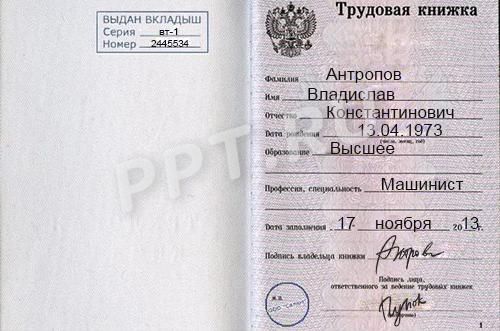 ВЫДАН ВКЛАДЫШ
Серия вт-1
Номер 2445534
Трудовая книжка
Фамилия Антропов
Имя Владислав
Отчество Константинович
Дата рождения 13.04.1973
(число, месяц, год)
Образование Высшее
Профессия, специальность Машинист
Дата заполнения 17 ноября 2013
Подпись владельца книжки Антропов
Подпись лица,
ответственного за ведение трудовых книжек
М.П.
1
PPT.RU